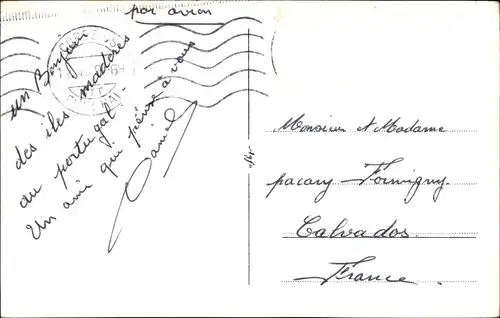 par avion
un Bonjour
des iles madères
au portugal.
Un ami qui pense à vous
Daniel
Monsieur et Madame
pacary Formigny.
Calvados.
France.